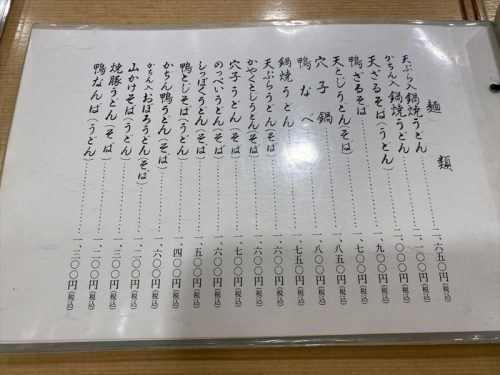 麺類
天ぷら入鍋焼うどん……二、六五〇円(税込)
かちん入鍋焼うどん……二、一〇〇円(税込)
天ざるそば(うどん)……二、〇〇〇円(税込)
鴨ざるそば……一、九〇〇円(税込)
天とじうどん(そば……一、七〇〇円(税込)
穴子鍋……一、八五〇円(税込)
鴨なべ……一、八〇〇円(税込)
鍋焼うどん……一、七五〇円(税込)
天ぷらうどん(そば……一、六〇〇円(税込)
かやくとじうどん(そば……一、六〇〇円(税込)
穴子うどん(そば……一、七〇〇円(税込)
のっぺいうどん(そば……一、六〇〇円(税込)
しっぽくうどん(そば……一、五〇〇円(税込)
鴨とじそば(うどん)……一、四〇〇円(税込)
かちん鴨うどん(そば……一、六〇〇円(税込)
かちん入おぼろうどん(そば……一、二〇〇円(税込)
山かけそば(うどん)……一、三〇〇円(税込)
焼豚うどん(そば……一、二〇〇円(税込)
鴨なんば(うどん)……一、三〇〇円(税込)